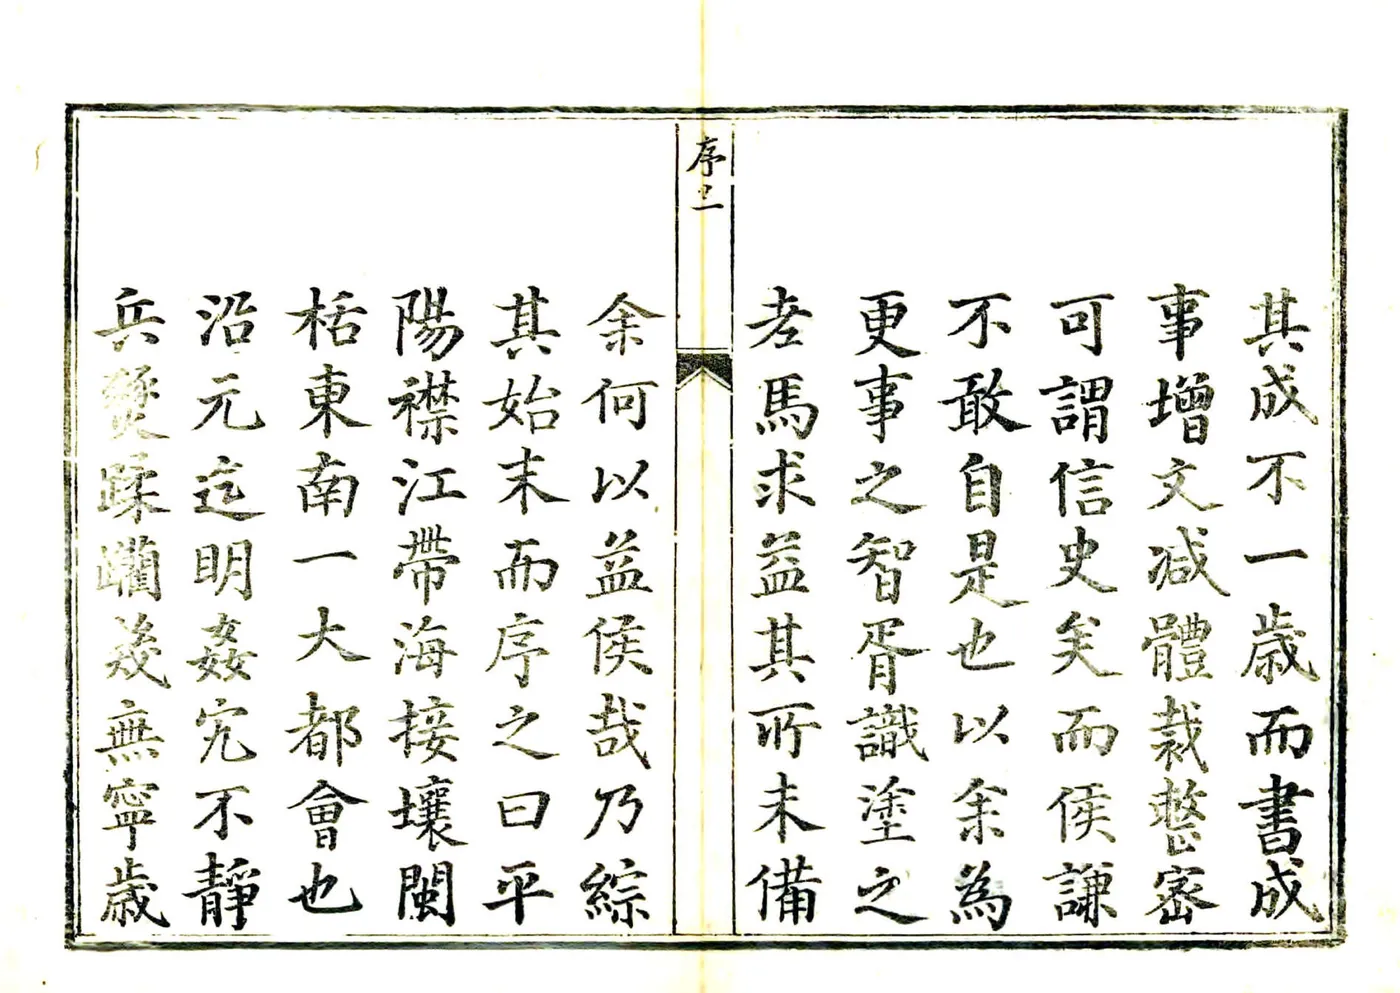 其成不一歲而書成
事增文減體裁整密
可謂信史矣而侯謙
不敢自是也以余為
更事之智胥識塗之
老馬求益其所未備
序二
余何以益侯哉乃綜
其始末而序之曰平
陽襟江帶海接壤閩
栝東南一大都會也
沿元迄明姦宄不靜
兵燹蹂躪幾無寧歲